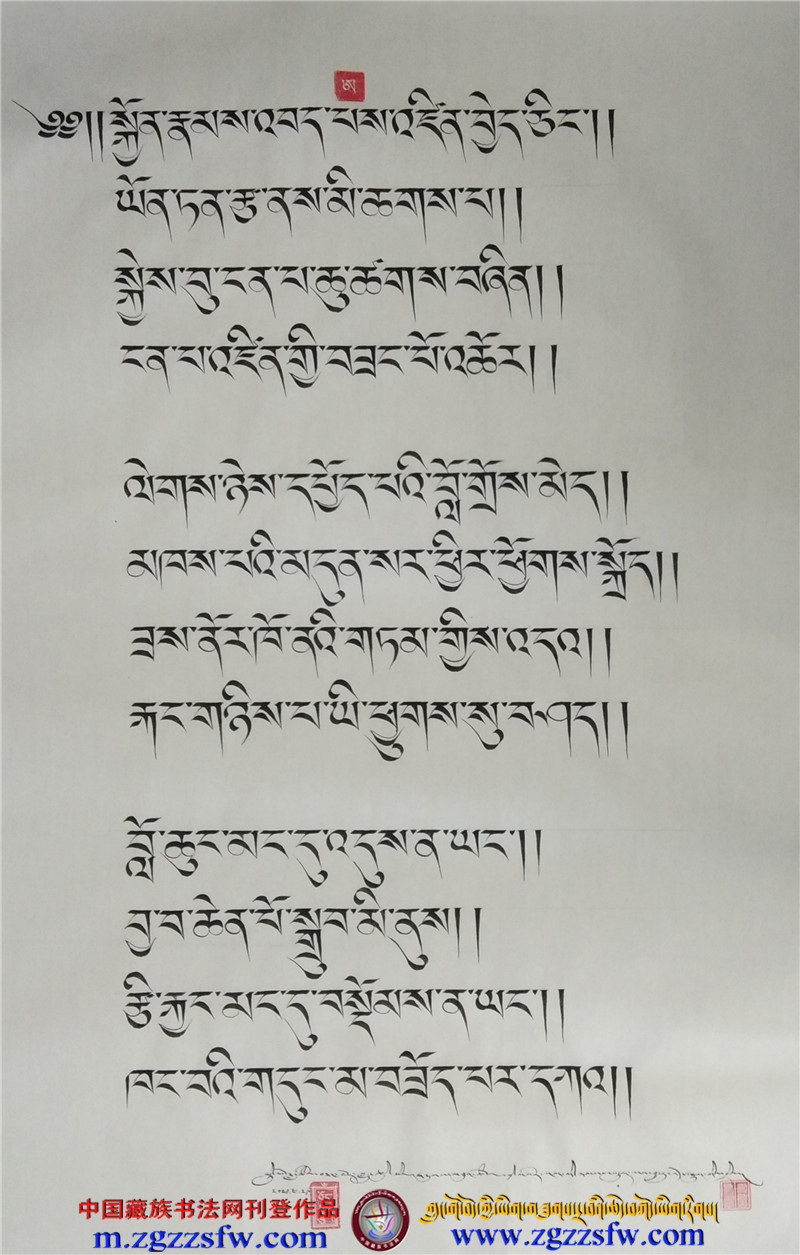 ༄༅།།སྐྱོན་རྣམས་འབད་པས་འཛིན་བྱེད་ཅིང་།།
ཡོན་ཏན་རྩ་ནས་མི་ཆགས་པ།།
སྐྱེས་བུ་ངན་པ་ཆུ་ཚགས་བཞིན།།
ངན་པ་འཛིན་གྱི་བཟང་པོ་འཆོར།།
ལེགས་ཉེས་དཔྱོད་པའི་བློ་གྲོས་མེད།།
མཁས་པའི་མདུན་སར་ཕྱིར་ཕྱོགས་སྐྲོད།།
ཟས་ནོར་ཁོ་ནའི་གཏམ་གྱིས་འདའ།།
རྐང་གཉིས་པ་ཡི་ཕྱུགས་སུ་བཤད།།
བློ་ཆུང་མང་དུ་འདུས་ན་ཡང་།།
བྱ་བ་ཆེན་པོ་སྒྲུབ་མི་ནུས།།
རྩི་རྐྱང་མང་དུ་བསྡོམས་ན་ཡང་།།
ཁང་བའི་གདུང་མ་བཟོད་པར་དཀའ།།
中国藏族书法网刊登作品
m.zgzzsfw.com
www.zgzzsfw.com